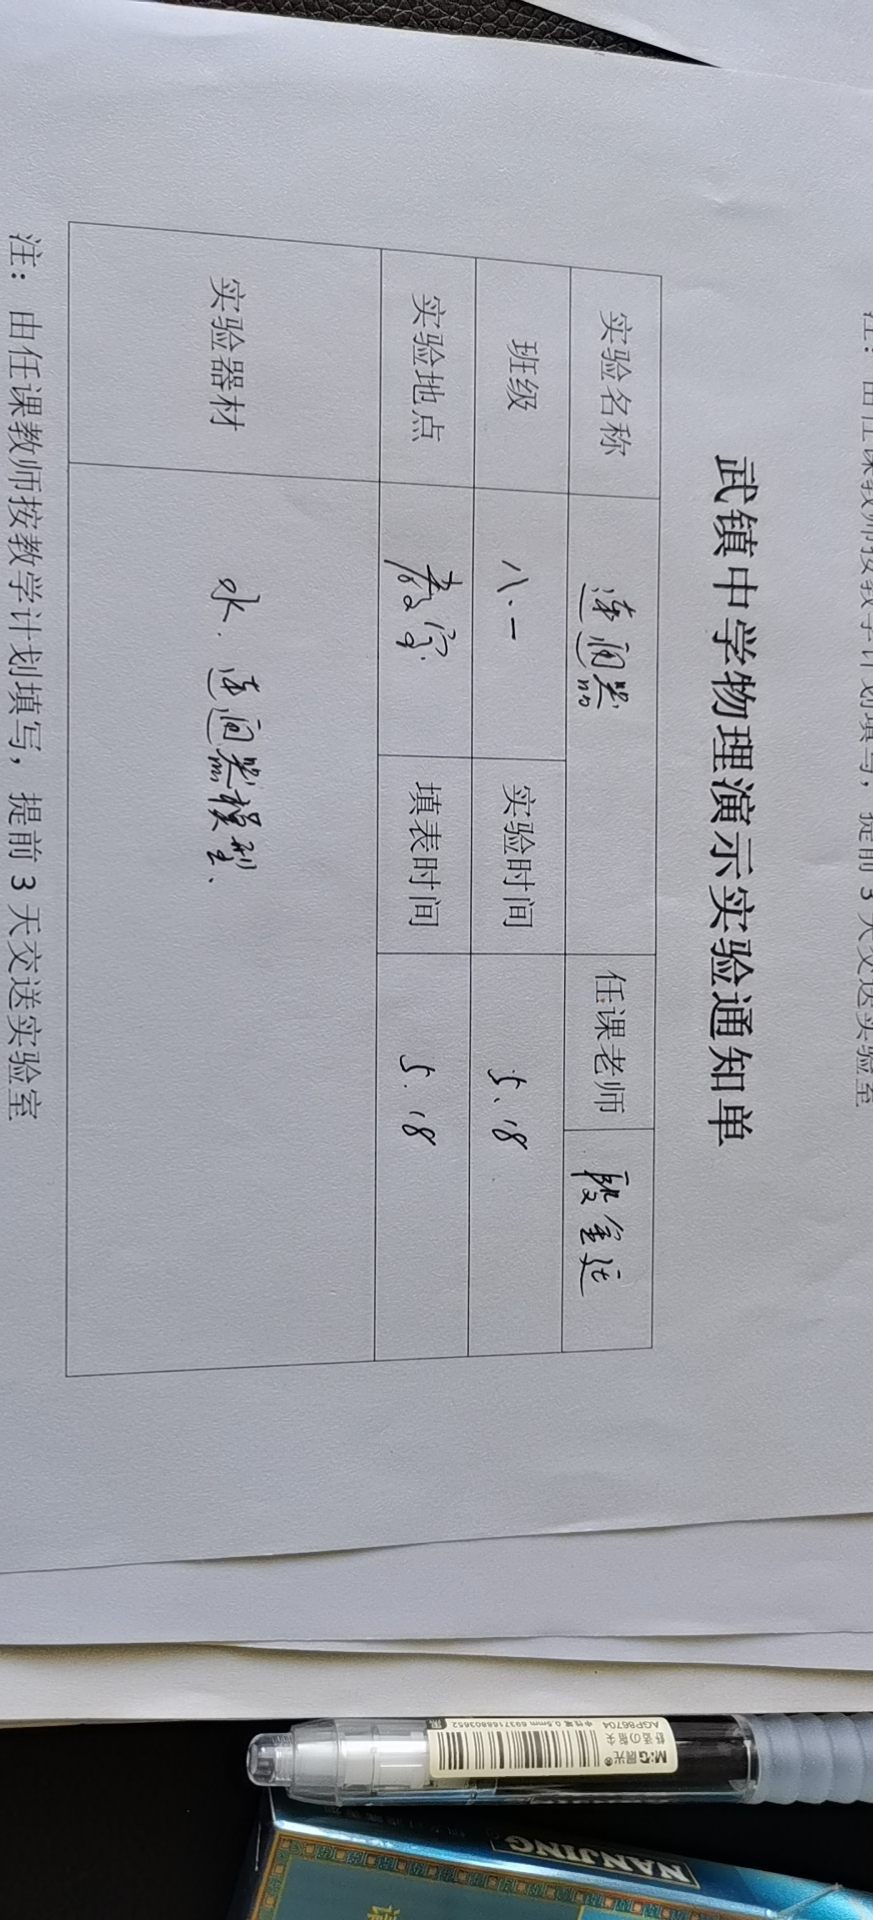 注：由任课教师按教学计划填写，提前 3 天交送实验室
武镇中学物理演示实验通知单
实验名称 连通器 任课老师
班级 八.一 实验时间 5.18
实验地点 教室 填表时间 5.18
实验器材 水. 连通器模型、
注：由任课教师按教学计划填写，提前 3 天交送实验室
M&G 晨光®
舒适の握尖
AGP86704
中性笔 0.5mm 6937168803652
黑
NANJING